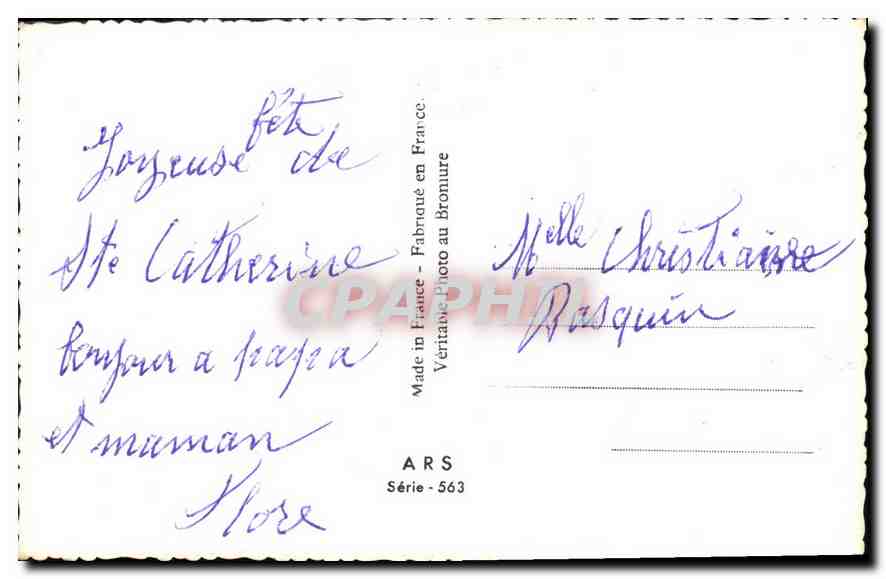 Joyeuse fête de
Ste Catherine
bonjour a papa
et maman
Flore
Made in France - Fabriqué en France.
Véritable Photo au Bromure
ARS
Série - 563
Melle Christiane
Pasquin
CPAPHIL